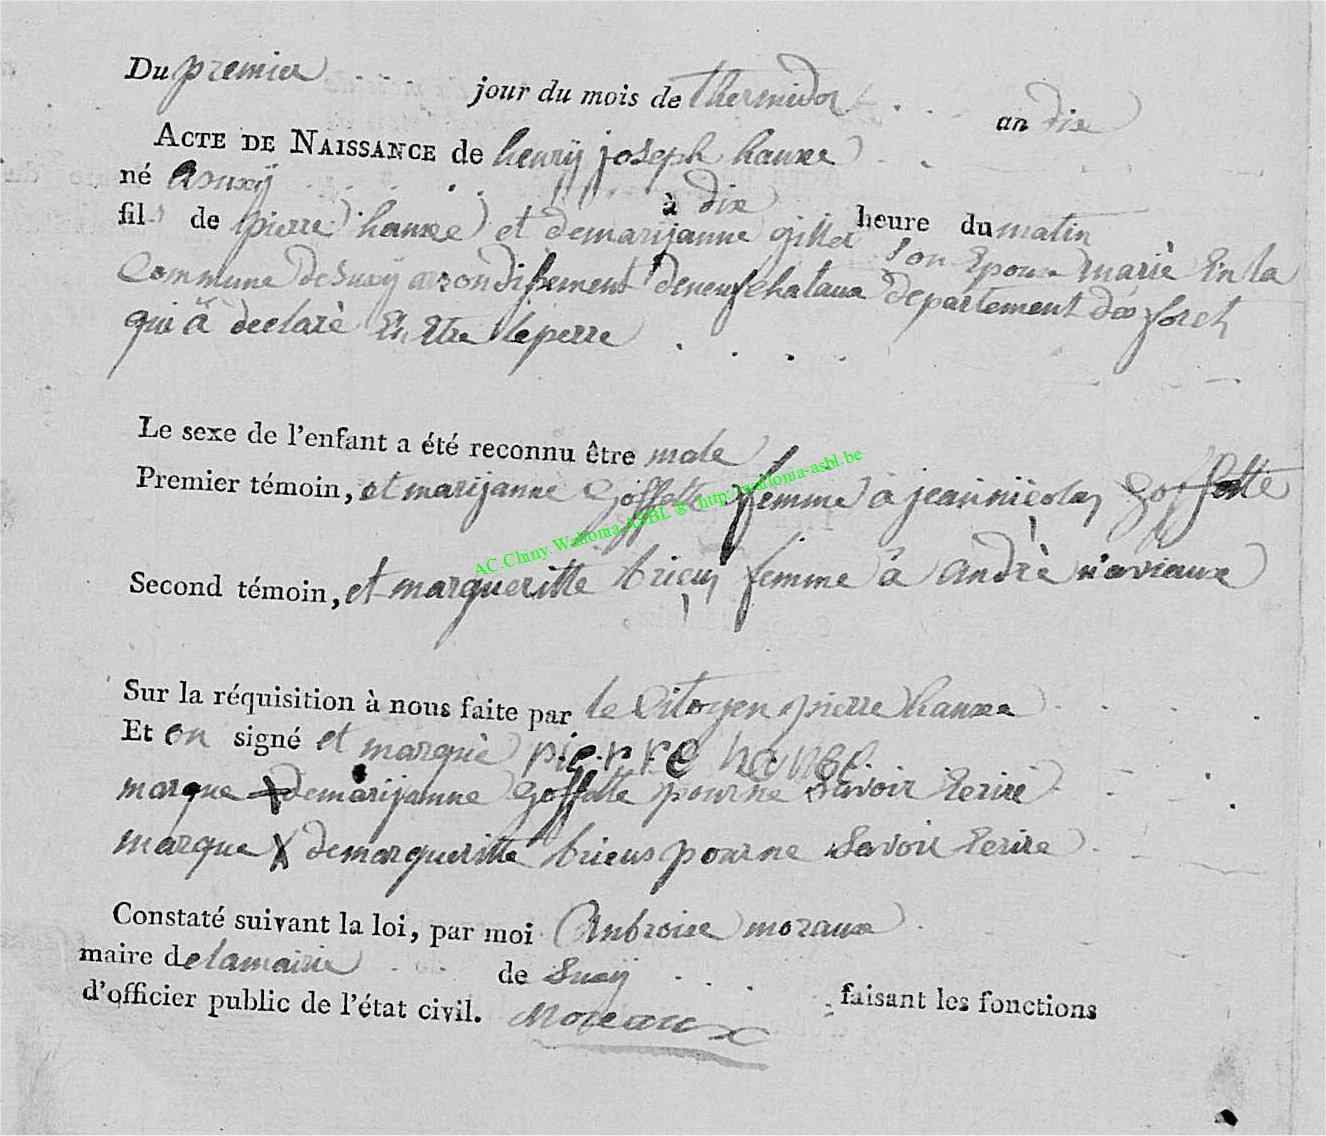 Du premier jour du mois de thermidor an dix
ACTE DE NAISSANCE de henrÿ joseph hanxe
né a suxÿ à dix heure du matin
fils de pierre hanxe et demarijanne gillet son Epouse mariè En la
Commune desuxÿ arrondissement deneufchataux departement des foret
qui â dèclarè En Etre le perre
Le sexe de l'enfant a été reconnu être male
Premier témoin, et marijanne Goffette femme à jean nicolas Goffette
AC.Chiny Wallonia ASBL ® http://wallonia-asbl.be
Second témoin, et margueritte brieus femme â andrè naviaux
Sur la réquisition à nous faite par le Citoyen pierre hanxe
Et on signé et marquè pierre hanxe
marque X demarijanne Goffette pour ne savoir Ecrire
marque X demargueritte brieus pour ne Savoir Ecrire
Constaté suivant la loi, par moi Ambroise moraux
maire de lamairie de Suxÿ faisant les fonctions
d'officier public de l'état civil. Moreaux